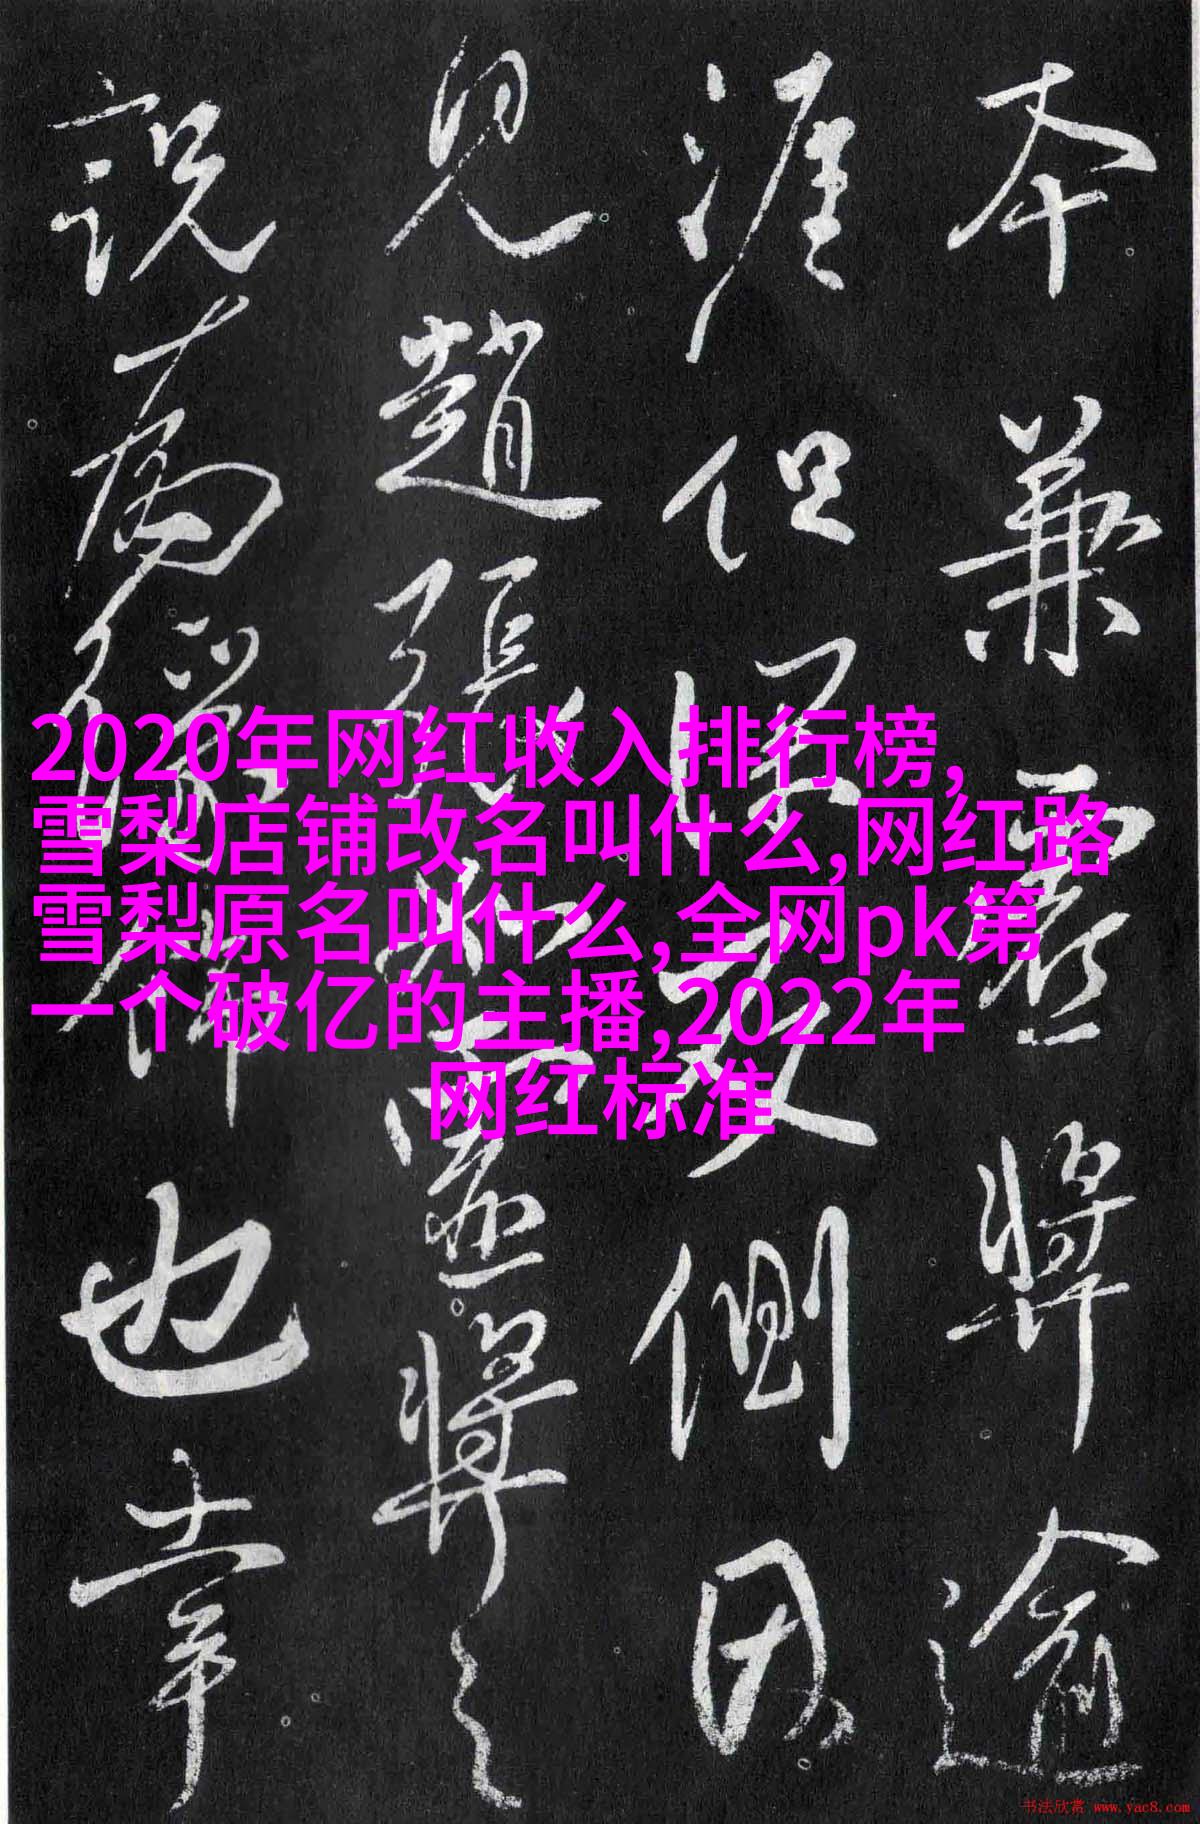 2020年网红收入排行榜,
雪梨店铺改名叫什么,网红路
雪梨原名叫什么,全网pk第
一个破亿的主播,2022年
网红标准
本兼將逾
涯但側因
見趙張將之
説為也章
书法欣赏 www.yac8.com